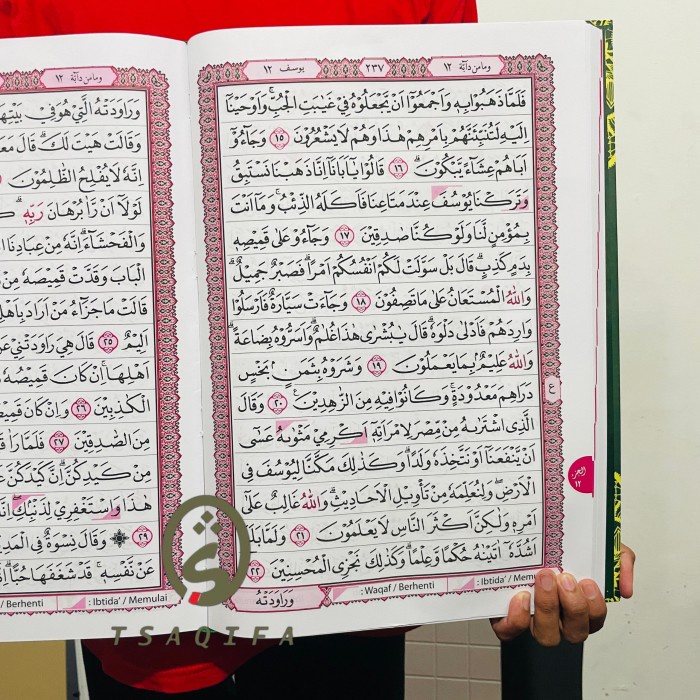 وما من دآبة ١٢
٢٣٧
يوسف ١٢
فَلَمَّا ذَهَبُوْا بِهٖ وَاَجْمَعُوْٓا اَنْ يَّجْعَلُوْهُ فِيْ غَيٰبَتِ الْجُبِّۚ وَاَوْحَيْنَآ
اِلَيْهِ لَتُنَبِّئَنَّهُمْ بِاَمْرِهِمْ هٰذَا وَهُمْ لَا يَشْعُرُوْنَ ١٥ وَجَاۤءُوْٓ
اَبَاهُمْ عِشَاۤءً يَّبْكُوْنَۗ ١٦ قَالُوْا يٰٓاَبَانَآ اِنَّا ذَهَبْنَا نَسْتَبِقُ
وَتَرَكْنَا يُوْسُفَ عِنْدَ مَتَاعِنَا فَاَكَلَهُ الذِّئْبُۚ وَمَآ اَنْتَ
بِمُؤْمِنٍ لَّنَا وَلَوْ كُنَّا صٰدِقِيْنَ ١٧ وَجَاۤءُوْ عَلٰى قَمِيْصِهٖ
بِدَمٍ كَذِبٍۗ قَالَ بَلْ سَوَّلَتْ لَكُمْ اَنْفُسُكُمْ اَمْرًاۗ فَصَبْرٌ جَمِيْلٌۗ
وَاللّٰهُ الْمُسْتَعَانُ عَلٰى مَا تَصِفُوْنَ ١٨ وَجَاۤءَتْ سَيَّارَةٌ فَاَرْسَلُوْا
وَارِدَهُمْ فَاَدْلٰى دَلْوَهٗۗ قَالَ يٰبُشْرٰى هٰذَا غُلٰمٌۗ وَاَسَرُّوْهُ بِضَاعَةًۗ
وَاللّٰهُ عَلِيْمٌۢ بِمَا يَعْمَلُوْنَ ١٩ وَشَرَوْهُ بِثَمَنٍۢ بَخْسٍ
دَرَاهِمَ مَعْدُوْدَةٍۚ وَكَانُوْا فِيْهِ مِنَ الزّٰهِدِيْنَࣖ ٢٠ وَقَالَ
الَّذِى اشْتَرٰىهُ مِنْ مِّصْرَ لِامْرَاَتِهٖٓ اَكْرِمِيْ مَثْوٰىهُ عَسٰٓى
اَنْ يَّنْفَعَنَآ اَوْ نَتَّخِذَهٗ وَلَدًاۗ وَكَذٰلِكَ مَكَّنَّا لِيُوْسُفَ فِى
الْاَرْضِۖ وَلِنُعَلِّمَهٗ مِنْ تَأْوِيْلِ الْاَحَادِيْثِۗ وَاللّٰهُ غَالِبٌ عَلٰٓى
اَمْرِهٖ وَلٰكِنَّ اَكْثَرَ النَّاسِ لَا يَعْلَمُوْنَ ٢١ وَلَمَّا بَلَغَ
اَشُدَّهٗٓ اٰتَيْنٰهُ حُكْمًا وَّعِلْمًاۗ وَكَذٰلِكَ نَجْزِى الْمُحْسِنِيْنَ ٢٢
وَرَاوَدَتْهُ
: Waqaf / Berhenti
: Ibtida' / Memu
ع
الجزء
١٢
وما من دآبة ١٢
وَرَاوَدَتْهُ الَّتِيْ هُوَ فِيْ بَيْتِهَا
وَقَالَتْ هَيْتَ لَكَۗ قَالَ مَعَا
اِنَّهٗ لَا يُفْلِحُ الظّٰلِمُوْنَ
لَوْلَآ اَنْ رَّاٰ بُرْهَانَ رَبِّهٖۗ
وَالْفَحْشَاۤءَۗ اِنَّهٗ مِنْ عِبَادِنَا
الْبَابَ وَقَدَّتْ قَمِيْصَهٗ مِنْ
قَالَتْ مَا جَزَاۤءُ مَنْ اَرَادَ بِاَهْلِ
اَلِيْمٌ ٢٥ قَالَ هِيَ رَاوَدَتْنِيْ عَنْ
اَهْلِهَاۚ اِنْ كَانَ قَمِيْصُهٗ
الْكٰذِبِيْنَ ٢٦ وَاِنْ كَانَ قَمِيْصُ
مِنَ الصّٰدِقِيْنَ ٢٧ فَلَمَّا رَاٰ قَ
مِنْ كَيْدِكُنَّۗ اِنَّ كَيْدَكُنَّ عَ
هٰذَا وَاسْتَغْفِرِيْ لِذَنْۢبِكِۖ اِنَّ
٢٩ ۞ وَقَالَ نِسْوَةٌ فِى الْمَدِ
عَنْ نَّفْسِهٖۚ قَدْ شَغَفَهَا حُبًّاۗ
Berhenti
: Ibtida' / Memulai
TSAQIFA